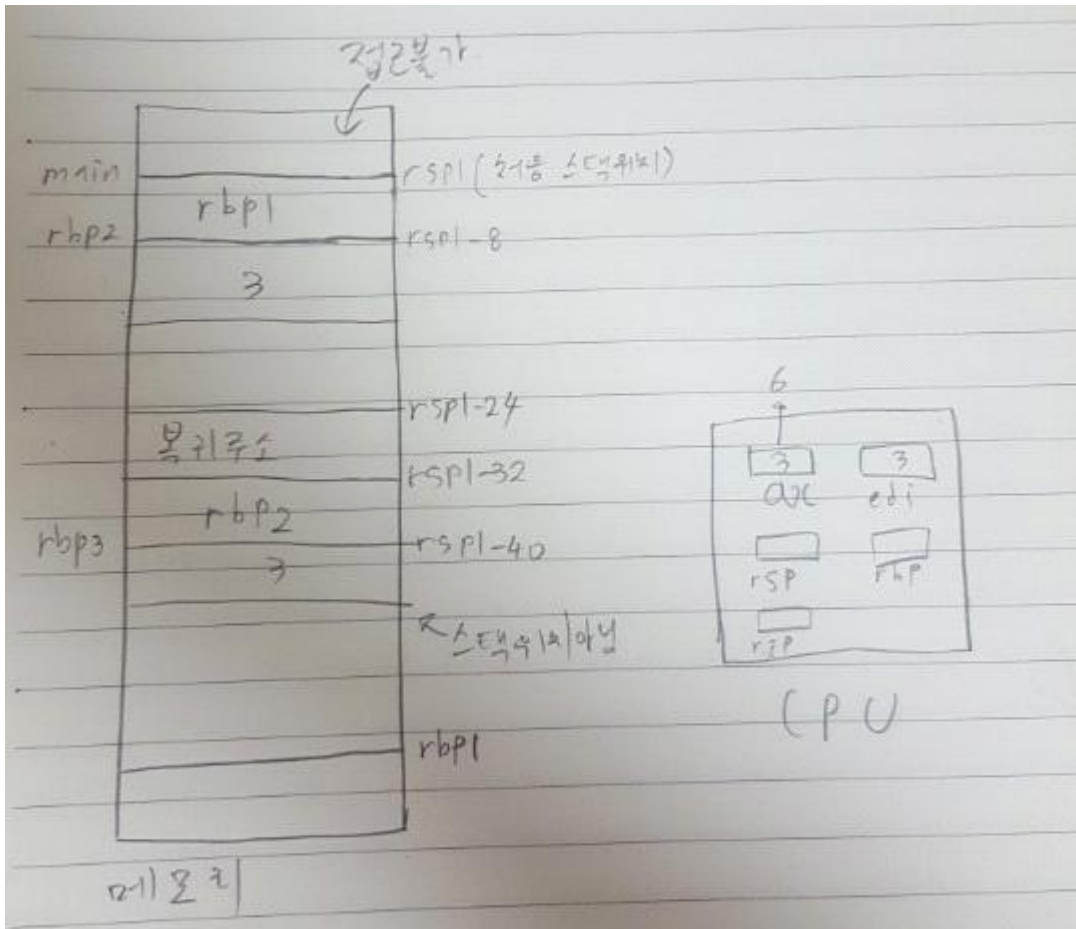 접근불가
main
rsp1 (처음 스택위치)
rbp1
rbp2
rsp1-8
3
rsp1-24
복귀주소
rsp1-32
rbp2
rbp3
rsp1-40
3
스택위치아님
rbp1
메모리
6
3
3
ax
edi
rsp
rbp
rip
CPU